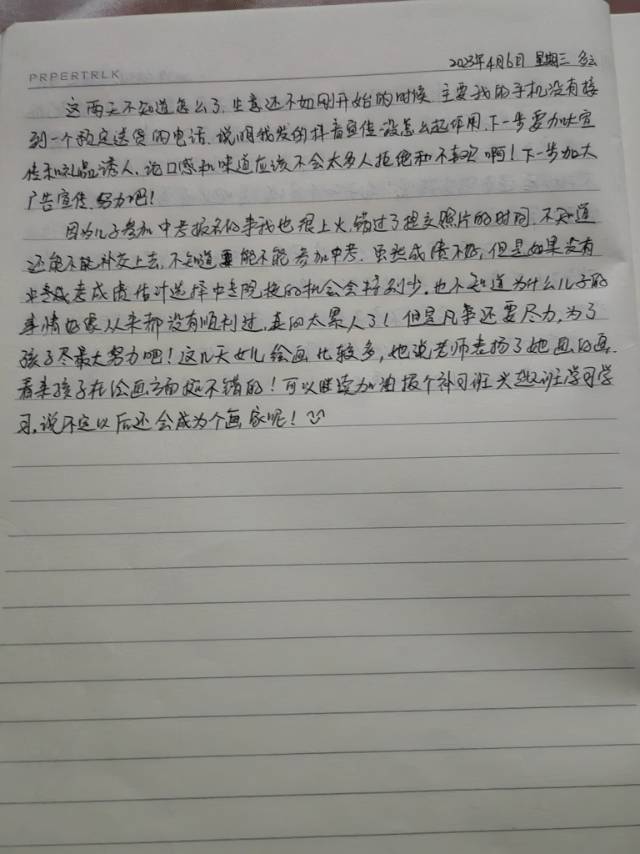 PRPERTRLK
2023年4月6日 星期三 多云
这两天不知道怎么了,生意还不如刚开始的时候 主要我的手机没有接
到一个预定送货的电话.说明我发的抖音宣传没怎么起作用.下一步要加大宣
传和礼品诱人,论口感和味道应该不会太多人拒绝和不喜欢啊!下一步加大
广告宣传.努力吧!
因为儿子参加中考报名的事我也很上火,错过了提交照片的时间.不知道
还能不能补交上去,不知道能不能参加中考.虽然成绩不好,但是如果没有
考成绩估计选择中专院校的机会会特别少,也不知道为什么儿子的
事情好象从来都没有顺利过,真的太累人了!但是凡事还要尽力,为了
孩子尽最大努力吧!这几天女儿绘画比较多,她说老师表扬了她画的画,
看来孩子在绘画方面挺不错的!可以继续加油报个补习班兴趣班学习学
习,说不定以后还会成为个画家呢!